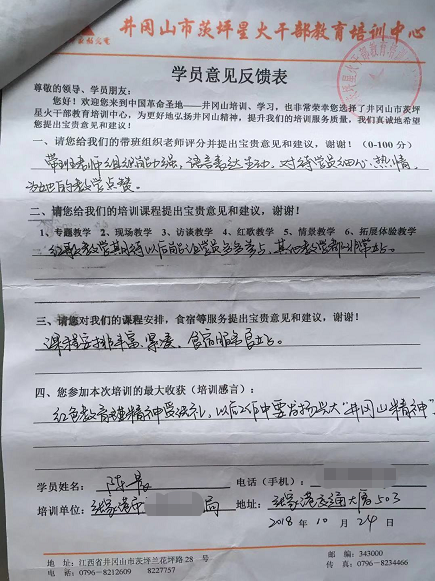 井冈山市茨坪星火干部教育培训中心
学员意见反馈表
尊敬的领导、学员朋友：
您好！欢迎您来到中国革命圣地——井冈山培训、学习，也非常荣幸您选择了井冈山市茨坪星
火干部教育培训中心，为更好地弘扬井冈山精神，提升我们的培训服务质量，我们真诚地希望
您提出宝贵意见和建议！
一、请您给我们的带班组织老师评分并提出宝贵意见和建议，谢谢！（0-100 分）
带班老师组织能力强、语言表达生动，对待学员细心、热情，
为她的教学点赞。
二、请您给我们的培训课程提出宝贵意见和建议，谢谢！
1、专题教学 2、现场教学 3、访谈教学 4、红歌教学 5、情景教学 6、拓展体验教学
红歌教学期待以后能让学员 点，其他教学都非常
三、请您对我们的课程安排，食宿等服务提出宝贵意见和建议，谢谢！
课程安排丰富、 食宿服务
四、您参加本次培训的最大收获（培训感言）：
红色教育 精神受洗礼，以后工作中要发扬光大“井冈山精神”
学员姓名： 陈 电话（手机）：
培训单位： 张家港市 局 地址： 张家港交通大厦503
2018 年 10 月 24 日
地址：江西省井冈山市茨坪兰花坪路 28 号 邮编：343000
电话：0796-8212609 8227757 传真：0796-8234466